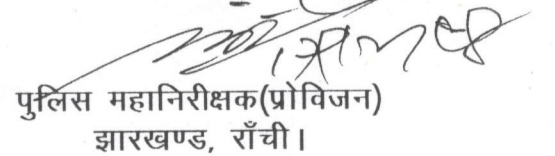 पुलिस महानिरीक्षक(प्रोविजन)
झारखण्ड, राँची।